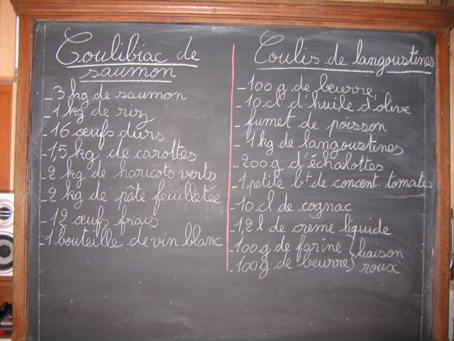 Coulibiac de
saumon
_ 3 kg de saumon
_ 1 kg de riz
_ 16 œufs durs
_ 1,5 kg de carottes
_ 2 kg de haricots verts
_ 2 kg de pâte feuilletée
_ 12 œufs frais
_ 1 bouteille de vin blanc
Coulis de langoustines
_ 100 g de beurre
_ 10 cl d'huile d'olive
_ fumet de poisson
_ 1 kg de langoustines
_ 200 g d'échalottes
_ 1 petite bte de concent tomates
_ 10 cl de cognac
_ 1,2 l de creme liquide
_ 100 g de farine } liaison
_ 100 g de beurre } roux